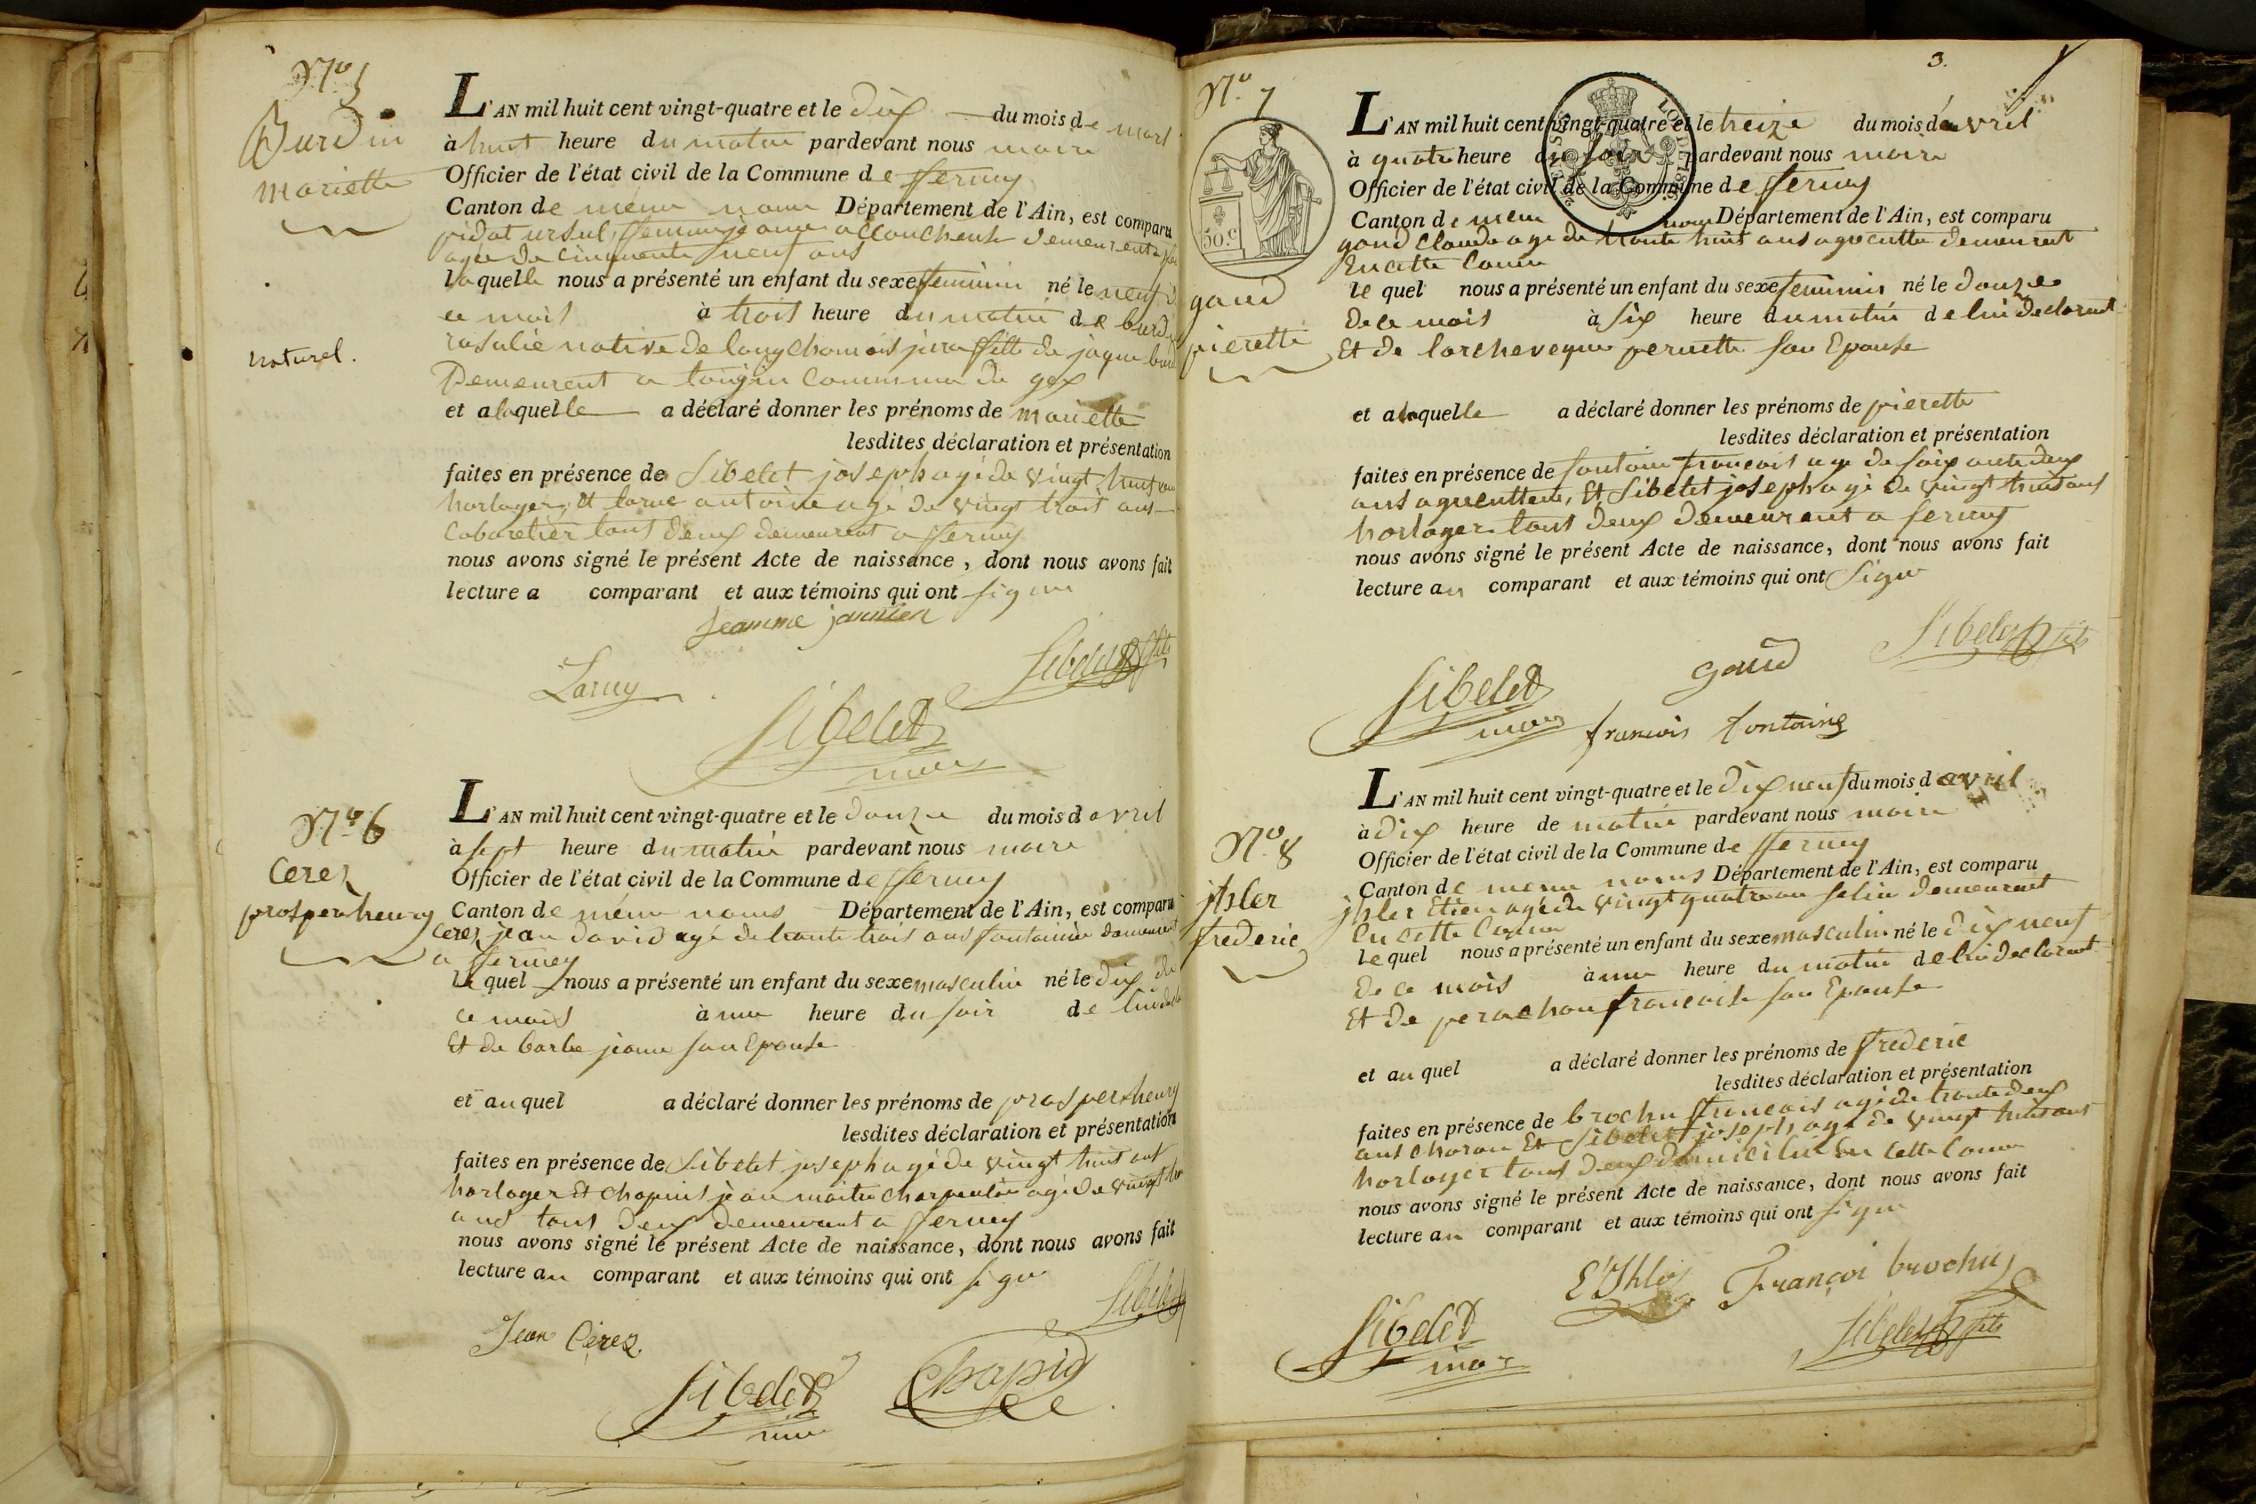 N.º 5
Burdin
mariette
naturel.
L'AN mil huit cent vingt-quatre et le dix du mois de mars
à huit heure du matin pardevant nous maire
Officier de l'état civil de la Commune de fernex
Canton de meme nom Département de l'Ain, est comparu
pidat ursul, femme jeanne accoucheuse demeurent a
agée de cinquante neuf ans
laquelle nous a présenté un enfant du sexe feminin né le neuf
ce mois à trois heure du matin de burdi
rosalie native de longchomois jura fille de jaque burd
Demeurent a tougin commune de gex
et a laquelle a déclaré donner les prénoms de mariette
lesdites déclaration et présentation
faites en présence de Sibelet joseph agé de vingt huit ans
horloger, et larue antoine agé de vingt trois ans
cabaretier tous deux demeurent a fernex
nous avons signé le présent Acte de naissance, dont nous avons fait
lecture a comparant et aux témoins qui ont signé
Jeanne
Sibelet fils
Sibelet
maire
N.º 6
Cerez
prosper henry
L'AN mil huit cent vingt-quatre et le douze du mois d avril
à sept heure du matin pardevant nous maire
Officier de l'état civil de la Commune de fernex
Canton de meme noms Département de l'Ain, est comparu
Cerez jean david agé de trante trois ans fontainier demeurent
a fernex
le quel nous a présenté un enfant du sexe masculin né le dix de
ce mois à une heure du soir de lui
Et de barbe jeanne son Epouse
et au quel a déclaré donner les prénoms de prosper henry
lesdites déclaration et présentation
faites en présence de Sibelet joseph agé de vingt huit ans
horloger Et chapuis jean maitre charpentier agé de vingt
ans tous deux demeurant a fernex
nous avons signé le présent Acte de naissance, dont nous avons fait
lecture au comparant et aux témoins qui ont signé
Sibelet
Jean Cerez.
Sibelet
maire
3.
N.º 7
50.c
gaud
pierette
L'AN mil huit cent vingt-quatre et le treize du mois d avril
à quatre heure du soir pardevant nous maire
Officier de l'état civil de la Commune de fernex
Canton de meme nom Département de l'Ain, est comparu
gaud Claude age de trante huit ans agriculte demeurent
En cette Comne
le quel nous a présenté un enfant du sexe feminin né le douze
de ce mois à six heure du matin de lui Declarent
Et de larcheveque pernette son Epouse
et a laquelle a déclaré donner les prénoms de pierette
lesdites déclaration et présentation
faites en présence de fontaine francois age de soix ante deux
ans agriculteur, Et Sibelet joseph agé de vingt huit ans
horloger tous deux demeurant a fernex
nous avons signé le présent Acte de naissance, dont nous avons fait
lecture au comparant et aux témoins qui ont signé
Sibelet fils
gaud
Sibelet
maire
francois fontaine
N.º 8
jhler
frederic
L'AN mil huit cent vingt-quatre et le dix neuf du mois d avril
à dix heure de matin pardevant nous maire
Officier de l'état civil de la Commune de fernex
Canton de meme noms Département de l'Ain, est comparu
jhler Etien agé de vingt quatre an selier demeurant
En cette Comne
le quel nous a présenté un enfant du sexe masculin né le dix neuf
de ce mois à une heure du matin de lui declarent
Et de perachon francoise son Epouse
et au quel a déclaré donner les prénoms de frederic
lesdites déclaration et présentation
faites en présence de brochu francois agé de trante deux
ans charon Et Sibelet joseph agé de vingt huit ans
horloger tous deux domicilié En cette Comne
nous avons signé le présent Acte de naissance, dont nous avons fait
lecture au comparant et aux témoins qui ont signé
E Jhler
Françoi brochu
Sibelet
maire
Sibelet fils